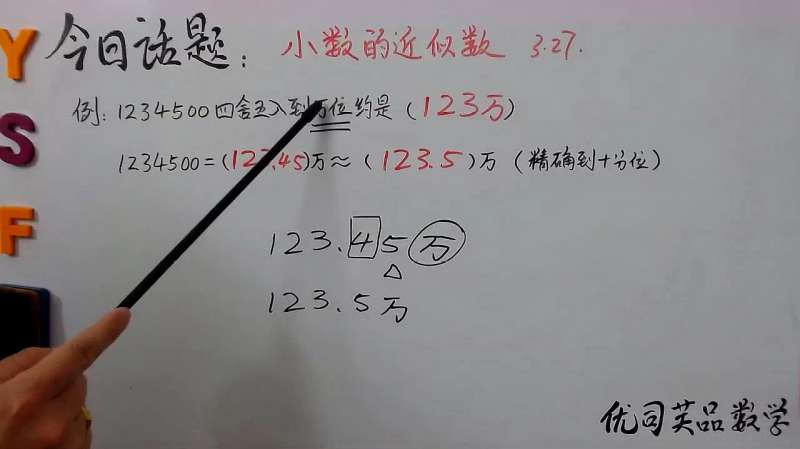 今日话题：小数的近似数 3.27.
例：1234500四舍五入到万位约是（123万）
1234500=(123.45)万≈（123.5）万（精确到十分位）
123.45万
123.5万
优司芙品数学
Y
S
F